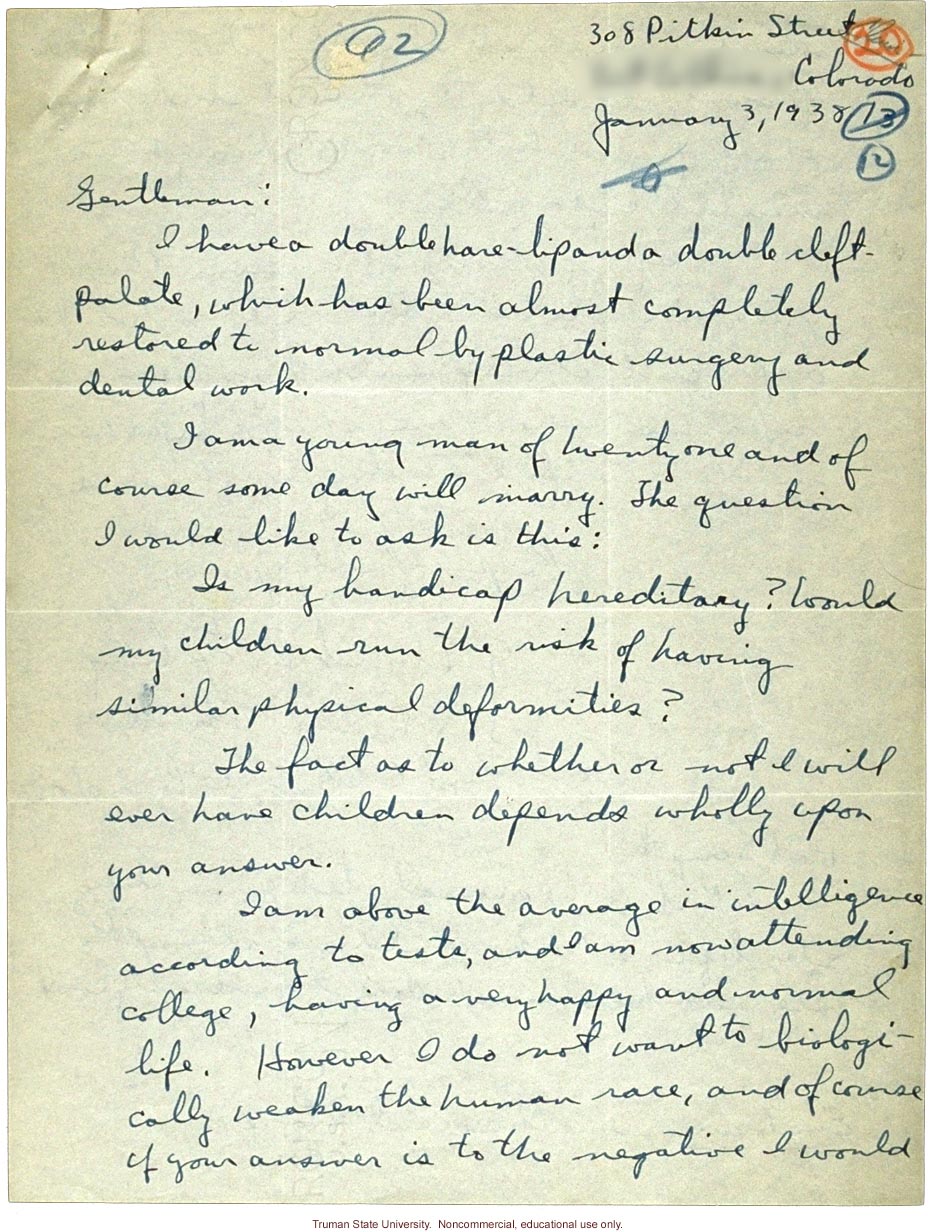 92
308 Pitkin Street
20
Colorado
January 3, 1938
13
12
Gentleman:
I have a double hare-lip and a double cleft-
palate, which has been almost completely
restored to normal by plastic surgery and
dental work.
I am a young man of twenty one and of
course some day will marry. The question
I would like to ask is this:
Is my handicap hereditary? Would
my children run the risk of having
similar physical deformities?
The fact as to whether or not I will
ever have children depends wholly upon
your answer.
I am above the average in intelligence
according to tests, and I am now attending
college, having a very happy and normal
life. However I do not want to biologi-
cally weaken the human race, and of course
if your answer is to the negative I would
Truman State University. Noncommercial, educational use only.